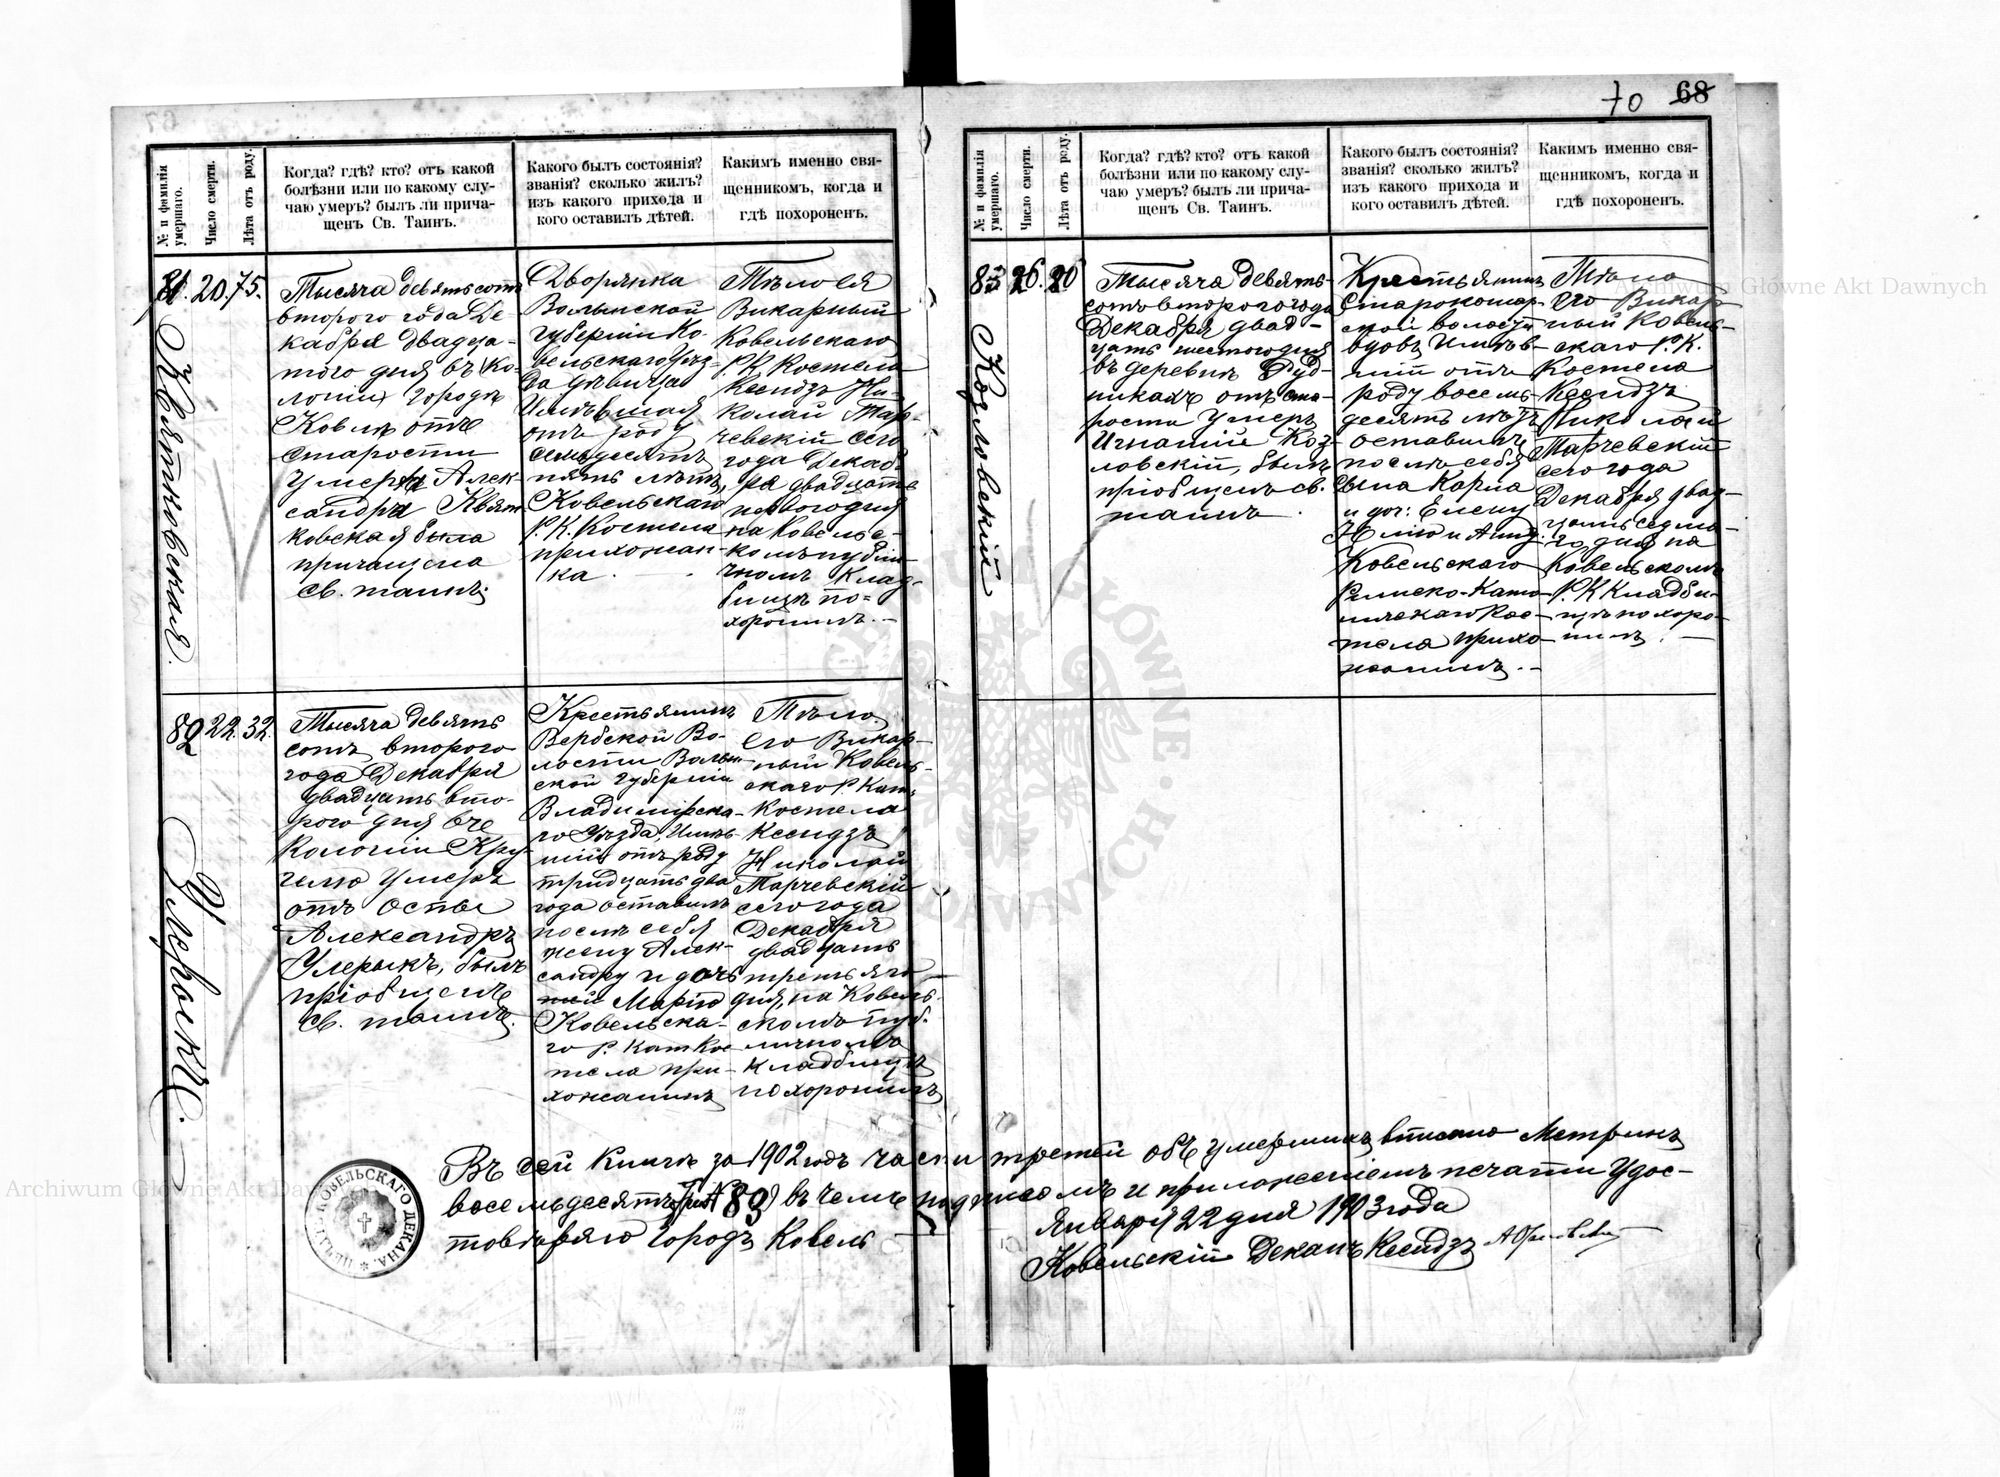 70 68
№ и фамилія умершаго.
Число смерти.
Лѣта отъ роду.
Когда? гдѣ? кто? отъ какой
болѣзни или по какому слу-
чаю умеръ? былъ ли прича-
щенъ Св. Таинъ.
Какого былъ состоянія?
званія? сколько жилъ?
изъ какого прихода и
кого оставилъ дѣтей.
Каким именно свя-
щенникомъ, когда и
гдѣ похороненъ.
81. 20. 75.
Квятковская.
Тысяча девятьсотъ
второго года Де-
кабря двадца-
того дня въ Ко-
лоніи Городъ
Ковлѣ отъ
старости
умерла Алек-
сандра Квят-
ковская была
причащена
св. таинъ.
Дворянка
Волынской
губерніи Ко-
вельскаго уѣз-
да дѣвица
Имѣвшая
отъ роду
семьдесятъ
пять лѣтъ,
Ковельскаго
Р. К. Костела
прихожан-
ка.
Тѣло ея
Викарный
Ковельскаго
Р. К. Костела
Ксендзъ Ни-
колай Тар-
чевскій сего
года Декаб-
ря двадцать
перваго дня
на Ковельс-
комъ публи-
чномъ Клад-
бищѣ по-
хоронилъ.
82 22. 32.
Улерыкъ.
Тысяча девять
сотъ второго
года Декабря
двадцать вто-
рого дня въ
Колоніи Кру-
гелю умеръ
отъ оспы
Александръ
Улерыкъ, былъ
пріобщенъ
св. таинъ.
Крестьянинъ
Вербской Во-
лости Волын-
ской губерніи
Владимірска-
го Уѣзда, Имѣв-
шій отъ роду
тридцать два
года оставилъ
послѣ себя
жену Алек-
сандру и дочь
Марію
Ковельска-
го Р. Кат Кос-
тела при-
хожанинъ
Тѣло
Его Викар-
ный Ковель-
скаго Р. Кат.
Костела
Ксендзъ
Николай
Тарчевскій
сего года
Декабря
двадцать
третьяго
дня, на Ковель-
скомъ пуб-
личномъ
Кладбищѣ
похоронилъ
№ и фамилія умершаго.
Число смерти.
Лѣта отъ роду.
Когда? гдѣ? кто? отъ какой
болѣзни или по какому слу-
чаю умеръ? былъ ли прича-
щенъ Св. Таинъ.
Какого былъ состоянія?
званія? сколько жилъ?
изъ какого прихода и
кого оставилъ дѣтей.
Какимъ именно свя-
щенникомъ, когда и
гдѣ похороненъ.
83 26.
Козловскій
Тысяча девять-
сотъ второго года
Декабря двад-
цать шестого дня
въ деревнѣ Руд-
никахъ отъ ста-
рости умеръ
Игнатій Коз-
ловскій, былъ
пріобщенъ св.
таинъ.
Крестьянинъ
Старокошар-
ской волости
вдовъ Имѣв-
шій отъ
роду восемь-
десятъ лѣтъ
оставилъ
послѣ себя
сына Карла
и доч: Елену
Юлію и Анну.
Ковельскаго
Римско-Като-
лическаго Кос-
тела прихо-
жанинъ.
Тѣло
Его Викар-
ный Ковель-
скаго Р. К.
Костела
Ксендзъ
Николай
Тарчевскій
сего года
Декабря двад-
цать седьмо-
го дня на
Ковельскомъ
Р. К Кладби-
щѣ похоро-
нилъ.
Въ сей Книгѣ за 1902 годъ части третей объ умершихъ вписано Метрикъ
восемьдесятъ три (№ 83) въ чемъ подписомъ и приложеніемъ печати Удос-
товѣряю Городъ Ковель Января 22 дня 1903 года
Ковельскій Деканъ Ксендзъ
ПЕЧАТЬ КОВЕЛЬСКАГО ДЕКАНА.
Archiwum Główne Akt Dawnych
Archiwum Główne Akt Dawnych
ARCHIWUM GŁÓWNE AKT DAWNYCH